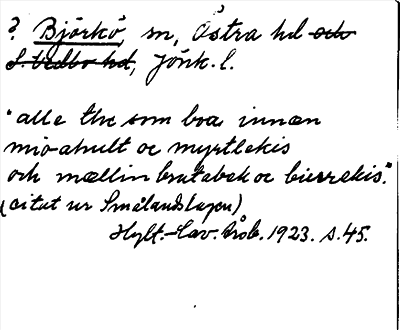 ? Björkö, sn, Östra hd och
S. Vedbo hd, Jönk. l.
"alle the som boa innæn
mio-ahult oc myrtlekis
och mællin brutabek oc bierrekis."
(citat ur Smålandslagen)
Hylt.-Cav. Årsb. 1923. s. 45.